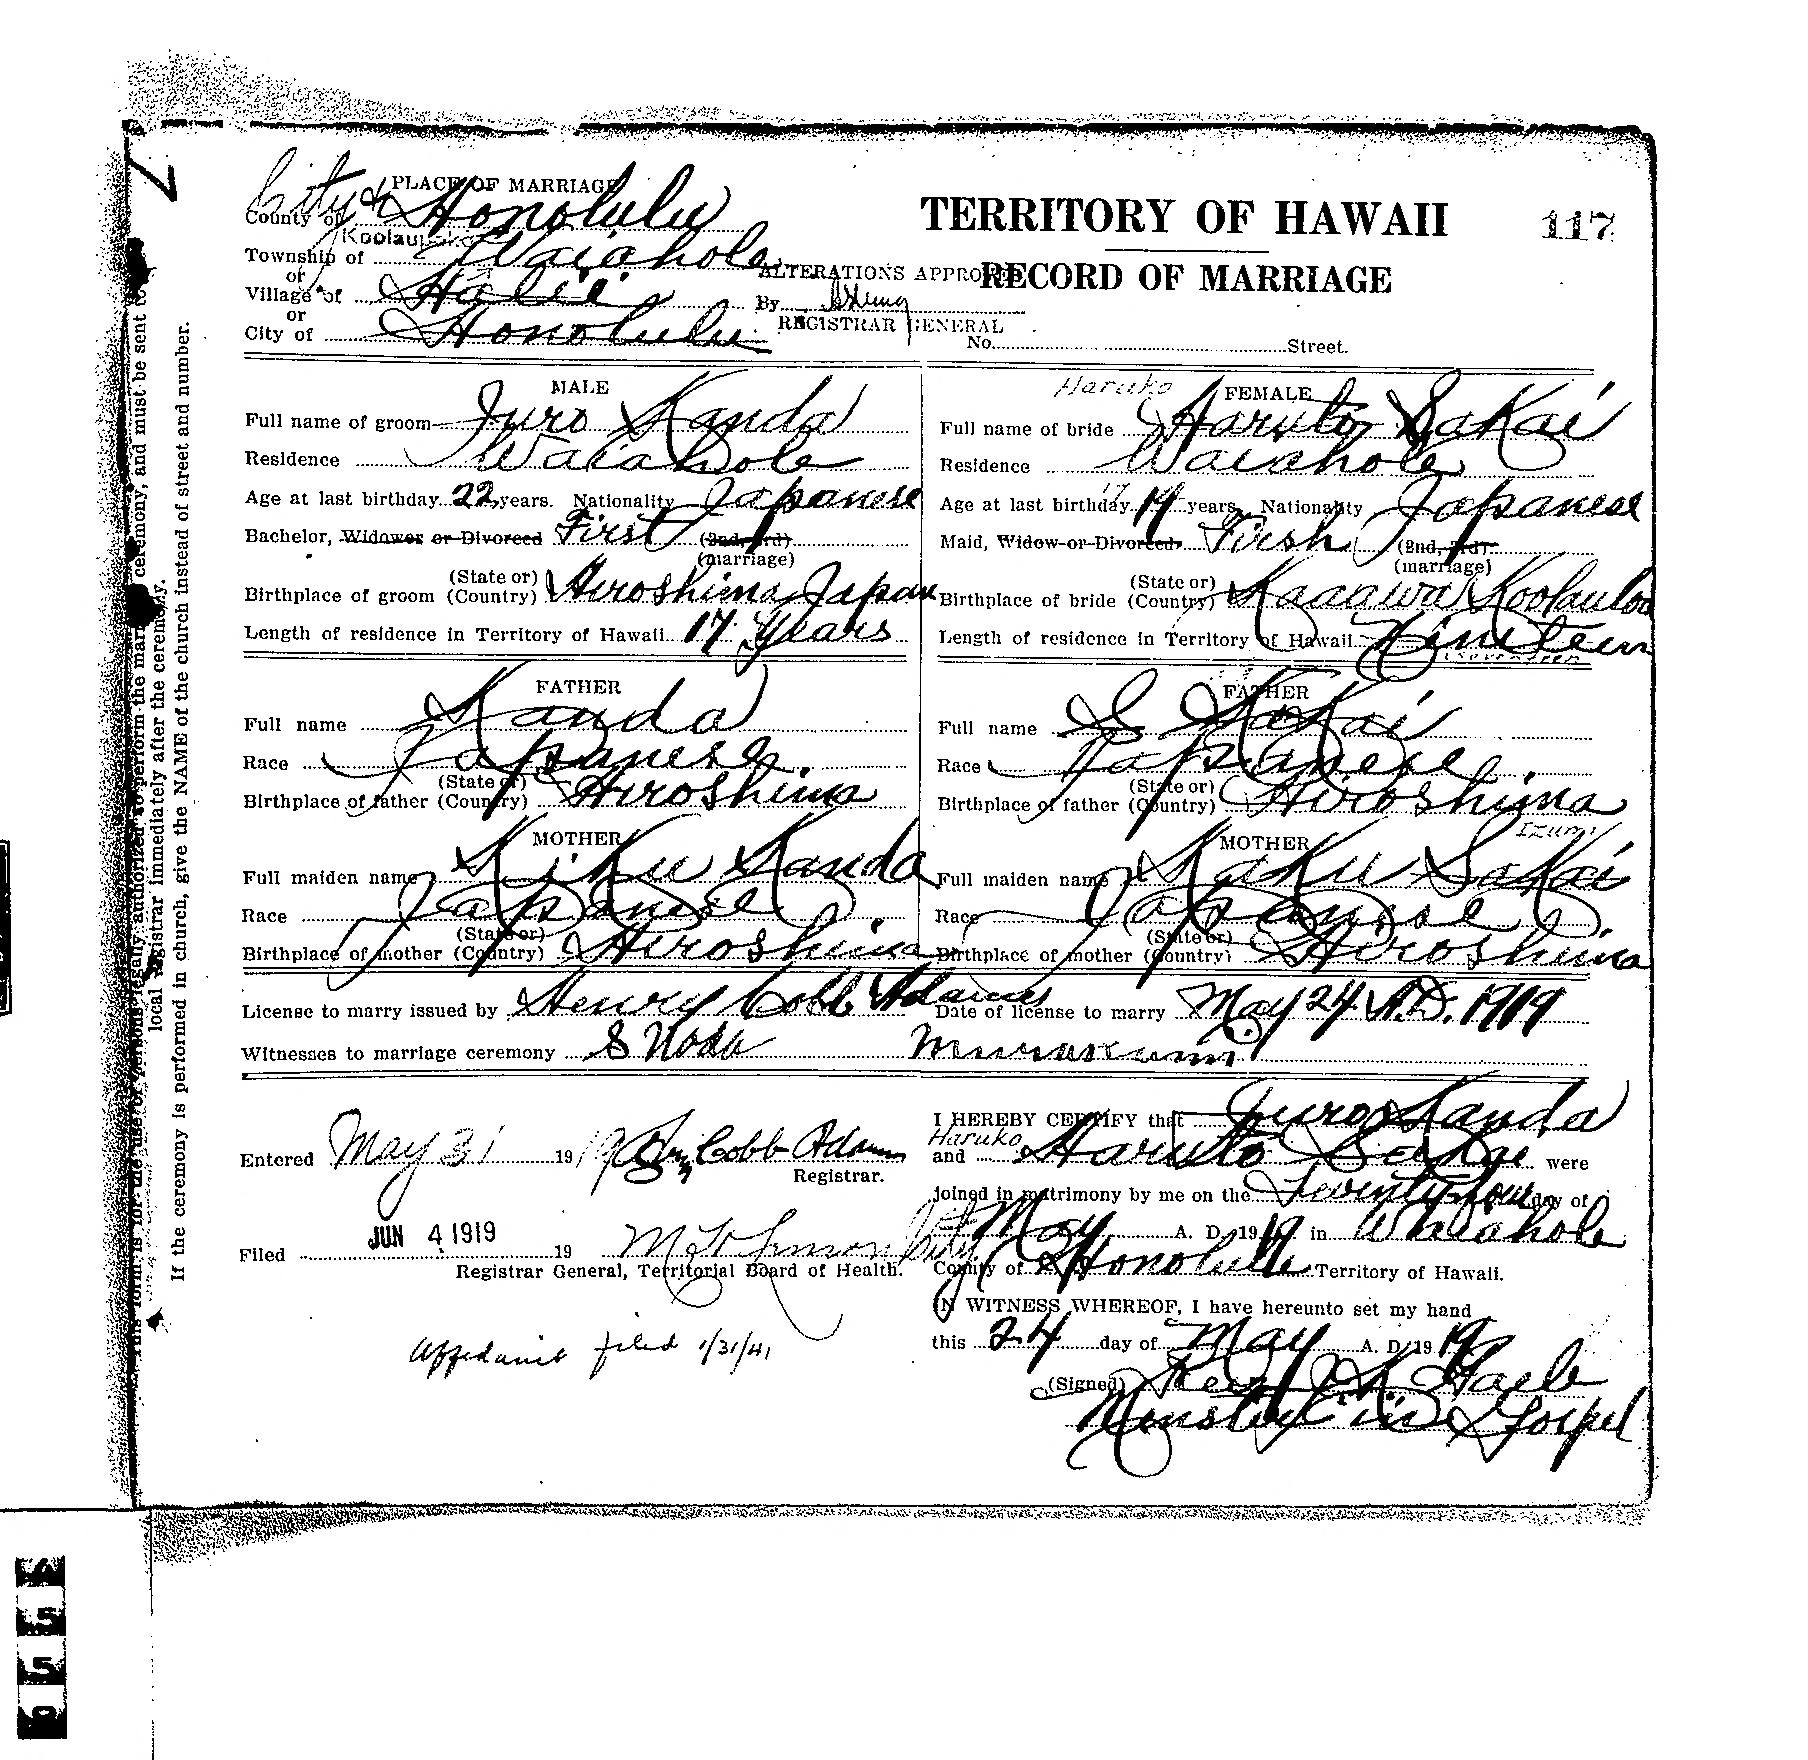 7
PLACE OF MARRIAGE
TERRITORY OF HAWAII
117
City &
County of Honolulu
Koolaupoko
Township of Waiahole
or
ALTERATIONS APPROVED
RECORD OF MARRIAGE
Village of
or
By
City of Honolulu
REGISTRAR GENERAL
No. Street.
MALE
Full name of groom Juro Kanda
Residence Waiahole
Age at last birthday 22 years. Nationality Japanese
Bachelor, Widower or Divorced First (2nd, 3rd)
(marriage)
Birthplace of groom (State or) (Country) Hiroshima Japan
Length of residence in Territory of Hawaii 17 Years
Haruko
FEMALE
Full name of bride Haruto Sakai
Residence Waiahole
17
Age at last birthday 19 years. Nationality Japanese
Maid, Widow or Divorced. First (2nd, 3rd)
(marriage)
Birthplace of bride (State or) (Country) Kaaawa Koolauloa
Length of residence in Territory of Hawaii Nineteen
Seventeen
FATHER
Full name Kanda
Race Japanese.
Birthplace of father (State or) (Country) Hiroshima
MOTHER
Full maiden name Kiku Kanda
Race Japanese.
Birthplace of mother (State or) (Country) Hiroshima
FATHER
Full name S Sakai
Race Japanese.
Birthplace of father (State or) (Country) Hiroshima
Izumi
MOTHER
Full maiden name Kaku Sakai
Race Japanese.
Birthplace of mother (State or) (Country) Hiroshima
License to marry issued by Henry Cobb Adams Date of license to marry May 24 A.D. 1919
Witnesses to marriage ceremony S Noda Murakami
Entered May 31 1919 Hy Cobb Adams
Registrar.
JUN 4 1919
Filed 19
Registrar General, Territorial Board of Health.
Affidavit filed 1/31/41
I HEREBY CERTIFY that Juro Kanda
Haruko
and Haruto Sakai were
joined in matrimony by me on the Twenty four day of
May A. D. 1919 in Waiahole
City &
County of Honolulu Territory of Hawaii.
IN WITNESS WHEREOF, I have hereunto set my hand
this 24 day of May A. D. 1919
(Signed) Rev
Minster in Gospel
local registrar immediately after the ceremony.
If the ceremony is performed in church, give the NAME of the church instead of street and number.